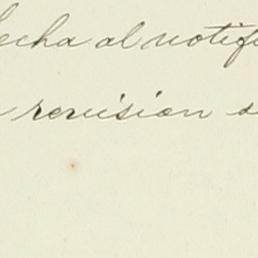 echa al notif
revision s